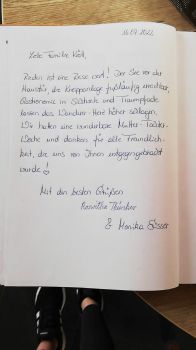 16.09.2022
Liebe Familie
Rieden ist eine Reise wert! Der See vor der
Haustür, die Kneippanlage fußläufig erreichbar,
Gastronomie in Sichtweite und Traumpfade
lassen das Wander-Herz höher schlagen.
Wir hatten eine wunderbare Mutter-Tochter-
Woche und danken für alle Freundlich-
keit, die uns von Ihnen entgegengebracht
wurde!
Mit den besten Grüßen
Roswitha
& Monika